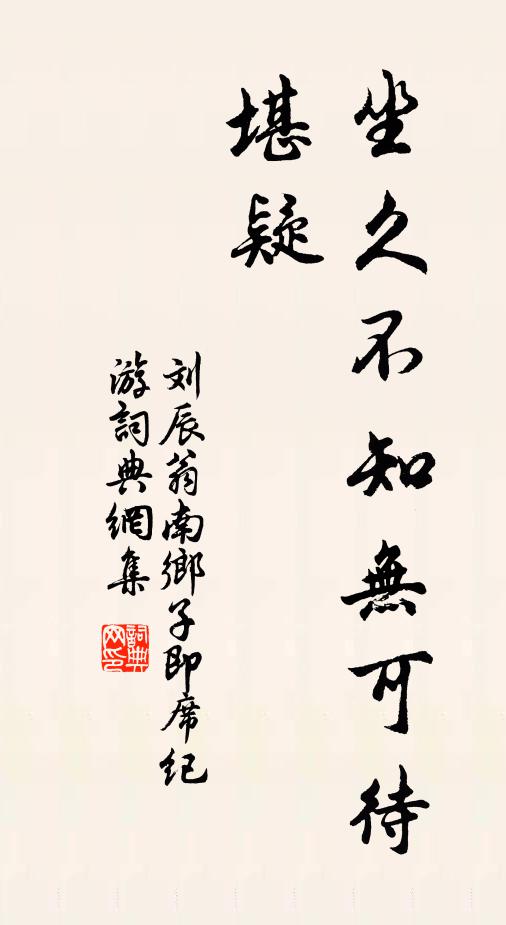 坐久不知無可待
堪疑
刘辰翁南鄉子即席纪
游詞典網集
詞典
网印